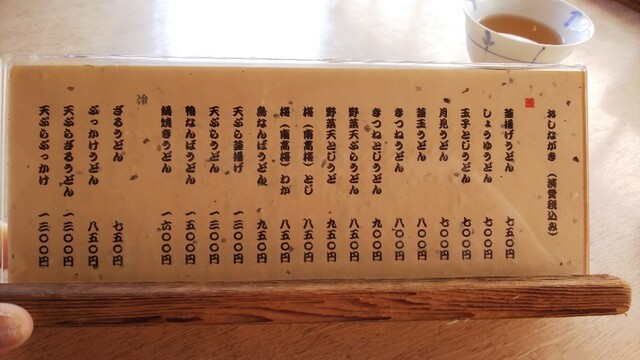 おしながき（消費税込み）
釜揚げうどん 七五〇円
しょうゆうどん 七〇〇円
玉子とじうどん 七〇〇円
月見うどん 七〇〇円
釜玉うどん 八〇〇円
きつねうどん 八〇〇円
きつねとじうどん 九〇〇円
野菜天ぷらうどん 八五〇円
野菜天とじうど 九五〇円
梅（南高梅）とじ 八五〇円
梅（南高梅）わか 八五〇円
鳥なんばうどん 九五〇円
天ぷら釜揚げ 一三〇〇円
天ぷらうどん 一三〇〇円
鴨なんばうどん 一五〇〇円
鍋焼きうどん 一六〇〇円
冷
ざるうどん 七五〇円
ぶっかけうどん 八五〇円
天ぷらざるうどん 一三〇〇円
天ぷらぶっかけ 一三〇〇円